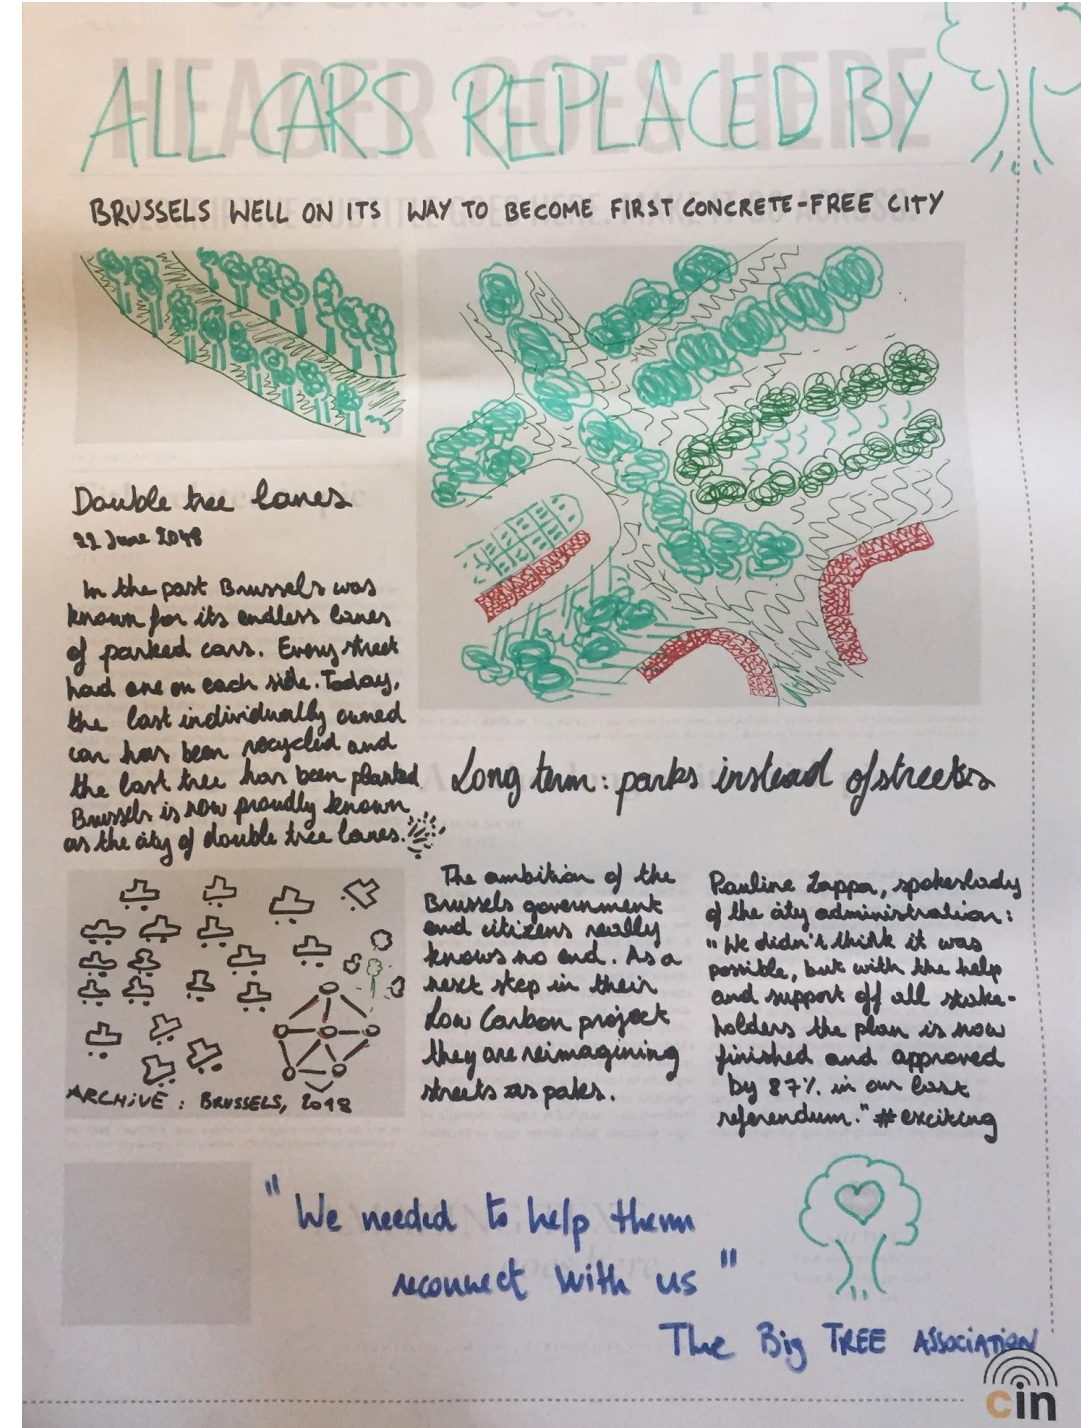 ALL CARS REPLACED BY
BRUSSELS WELL ON ITS WAY TO BECOME FIRST CONCRETE-FREE CITY
Double tree lanes
22 June 2048
In the past Brussels was
known for its endless lanes
of parked cars. Every street
had one on each side. Today,
the last individually owned
car has been recycled and
the last tree has been planted.
Brussels is now proudly known
as the city of double tree lanes.
ARCHIVE: BRUSSELS, 2018
Long term: parks instead of streets
The ambition of the
Brussels government
and citizens really
knows no end. As a
next step in their
Low Carbon project
they are reimagining
streets as paks.
Pauline Zappa, spokeslady
of the city administration:
"We didn't think it was
possible, but with the help
and support off all stake-
holders the plan is now
finished and approved
by 87% in our last
referendum." #exciting
"We needed to help them
reconnect with us"
The Big TREE ASSOCIATION
cin